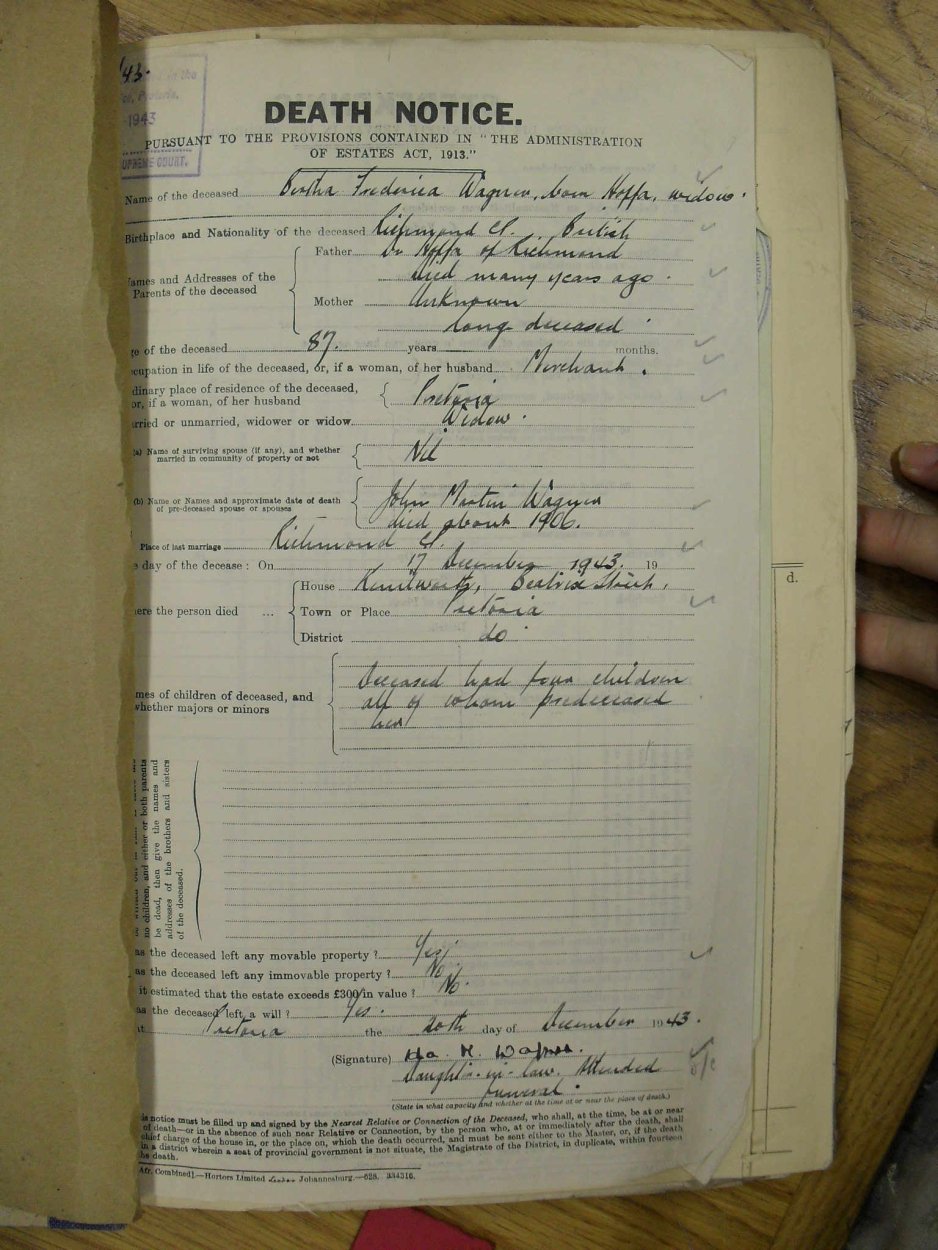 /43.
in the
Pretoria.
1943
SUPREME COURT.
DEATH NOTICE.
PURSUANT TO THE PROVISIONS CONTAINED IN "THE ADMINISTRATION
OF ESTATES ACT, 1913."
Name of the deceased Bertha Frederica Wagner, born Hoffa, widow.
Birthplace and Nationality of the deceased Richmond C.P. British
Names and Addresses of the Parents of the deceased
Father Dr Hoffa of Richmond
died many years ago.
Mother Unknown
long deceased.
ge of the deceased 87. years months.
ccupation in life of the deceased, or, if a woman, of her husband Merchant.
dinary place of residence of the deceased,
or, if a woman, of her husband Pretoria
rried or unmarried, widower or widow Widow.
(a) Name of surviving spouse (if any), and whether
married in community of property or not Nil
(b) Name or Names and approximate date of death
of pre-deceased spouse or spouses John Martin Wagner
died about 1906.
Place of last marriage Richmond C.P.
e day of the decease: On 17 December 1943. 19
House Kenilworth, Beatrix Street,
ere the person died ... Town or Place Pretoria
District do
mes of children of deceased, and
whether majors or minors
Deceased had four children
all of whom predeceased
her
no children, and either or both parents
be dead, then give the names and
addresses of the brothers and sisters
of the deceased.
as the deceased left any movable property? Yes.
as the deceased left any immovable property? No.
it estimated that the estate exceeds £300 in value? No.
as the deceased left a will? Yes.
t Pretoria the 20th day of December 1943.
(Signature) H. Wagner.
Daught-in-law. Attended
funeral.
(State in what capacity and whether at the time at or near the place of death.)
is notice must be filled up and signed by the Nearest Relative or Connection of the Deceased, who shall, at the time, be at or near
of death—or in the absence of such near Relative or Connection, by the person who, at or immediately after the death, shall
chief charge of the house in, or the place on, which the death occurred, and must be sent either to the Master, or, if the death
in a district wherein a seat of provincial government is not situate, the Magistrate of the District, in duplicate, within fourteen
he death.
Afr. Combined].—Hortors Limited Johannesburg.—628. 334316.
d.